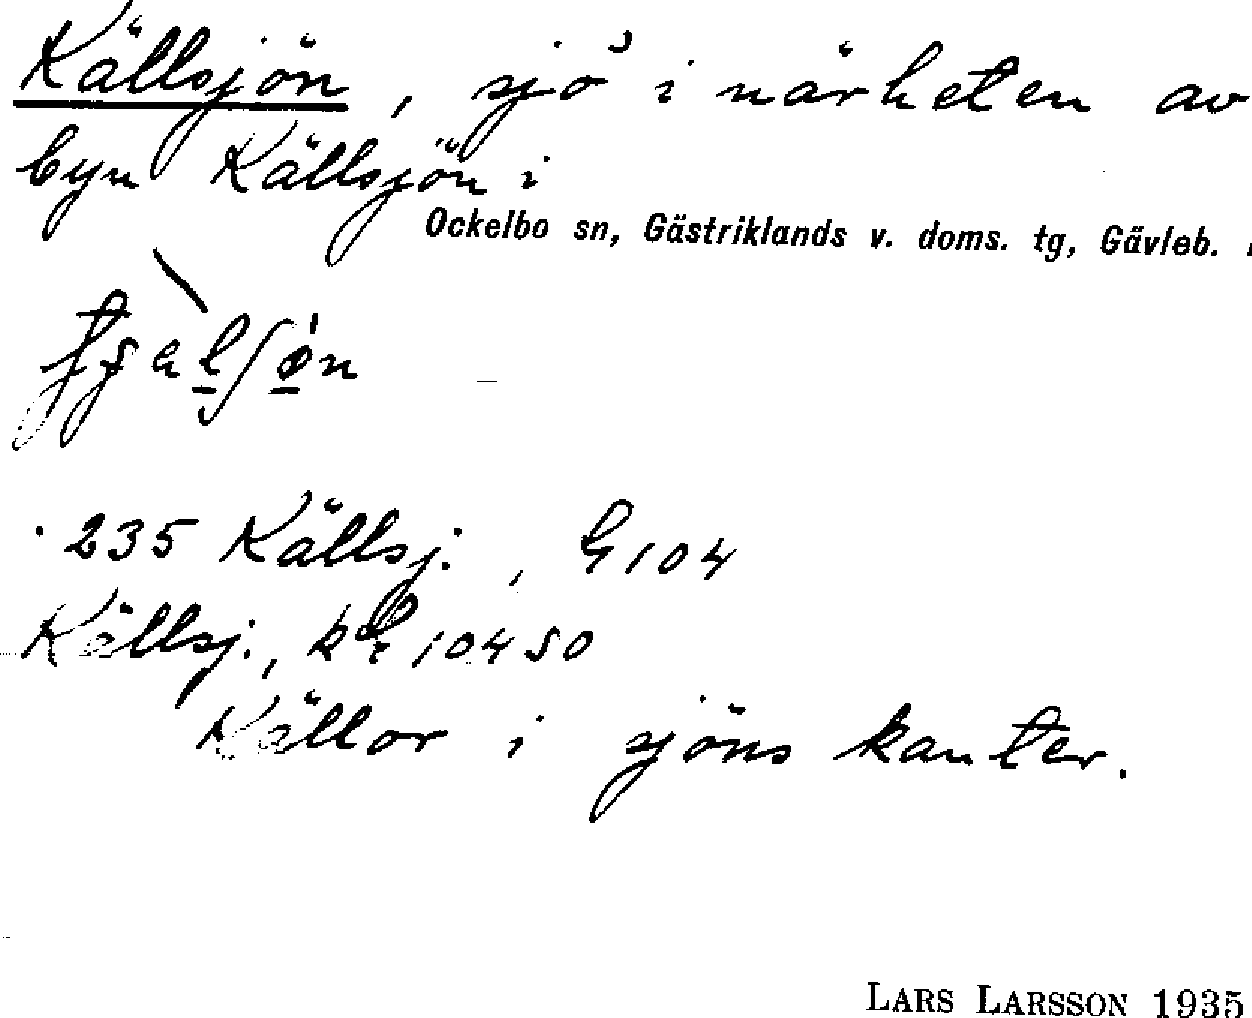 Källsjön, sjö i närheten av
byn Källsjön i
Ockelbo sn, Gästriklands v. doms. tg, Gävleb.
235 Källsj., G104
Källsj., 10450
Källor i sjöns kanter.
LARS LARSSON 1935